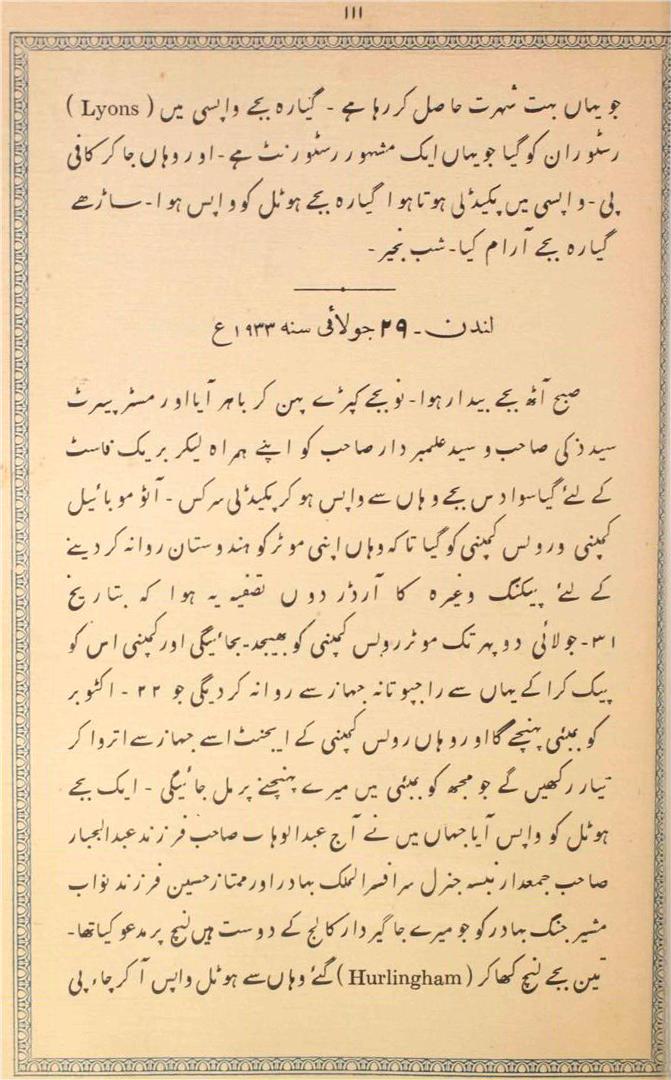 ۱۱۱
جو یہاں بہت شہرت حاصل کر رہا ہے - گیارہ بجے واپسی میں (Lyons)
رسٹوران کو گیا جو یہاں ایک مشہور رسٹورنٹ ہے - اور وہاں جا کر کافی
پی - واپسی میں پکیڈلی ہوتا ہوا گیارہ بجے ہوٹل کو واپس ہوا - ساڑھے
گیارہ بجے آرام کیا - شب بخیر -
لندن - ۲۹ جولائی سنہ ۱۹۳۳ع
صبح آٹھ بجے بیدار ہوا - نو بجے کپڑے پہن کر باہر آیا اور مسٹر پیرٹ
سید ذکی صاحب و سید علمبردار صاحب کو اپنے ہمراہ لیکر بریک فاسٹ
کے لئے گیا سوا دس بجے وہاں سے واپس ہو کر پکیڈلی سرکس - آٹو موبائیل
کمپنی ورولس کمپنی کو گیا تاکہ وہاں اپنی موٹر کو ہندوستان روانہ کر دینے
کے لئے پیکنگ وغیرہ کا آرڈر دوں تصفیہ یہ ہوا کہ بتاریخ
۳۱ - جولائی دوپہر تک موٹر رولس کمپنی کو بھیجدیجائیگی اور کمپنی اس کو
پیک کرا کے یہاں سے راجپوتانہ جہاز سے روانہ کر دیگی جو ۲۲ - اکٹوبر
کو بمبئی پہنچے گا اور وہاں رولس کمپنی کے ایجنٹ اسے جہاز سے اتروا کر
تیار رکھیں گے جو مجھ کو بمبئی میں میرے پہنچنے پر مل جائیگی - ایک بجے
ہوٹل کو واپس آیا جہاں میں نے آج عبدالوہاب صاحب فرزند عبدالجبار
صاحب جمعدار نبسہ جنرل سر افسرالملک بہادر اور ممتاز حسین فرزند نواب
مشیر جنگ بہادر کو جو میرے جاگیردار کالج کے دوست ہیں لنچ پر مدعو کیا تھا -
تین بجے لنچ کھا کر (Hurlingham) گئے وہاں سے ہوٹل واپس آ کر چاء پی